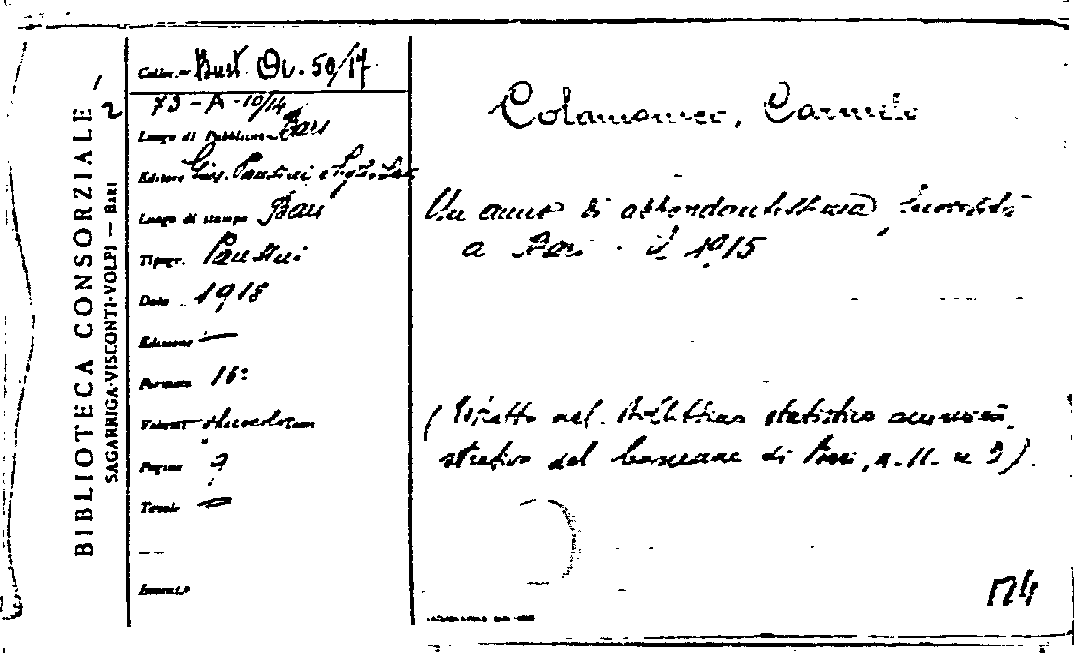 BIBLIOTECA CONSORZIALE
SAGARRIGA-VISCONTI-VOLPI — BARI
2
Colloc. Bust. Op. 50/17
73 - A - 10/14
Luogo di Pubblicaz. Bari
Editore Gius. Pansini e Figli
Luogo di stampa Bari
Tipogr. Pansini
Data 1918
Edizione —
Formato 16°
Volumi
Pagine 7
Tavole —
Colamonico, Carmelo
Un anno di abbondantissima
a Bari : il 1915
(Estratto nel Bollettino statistico amminis
strativo del comune di Bari, n. 11